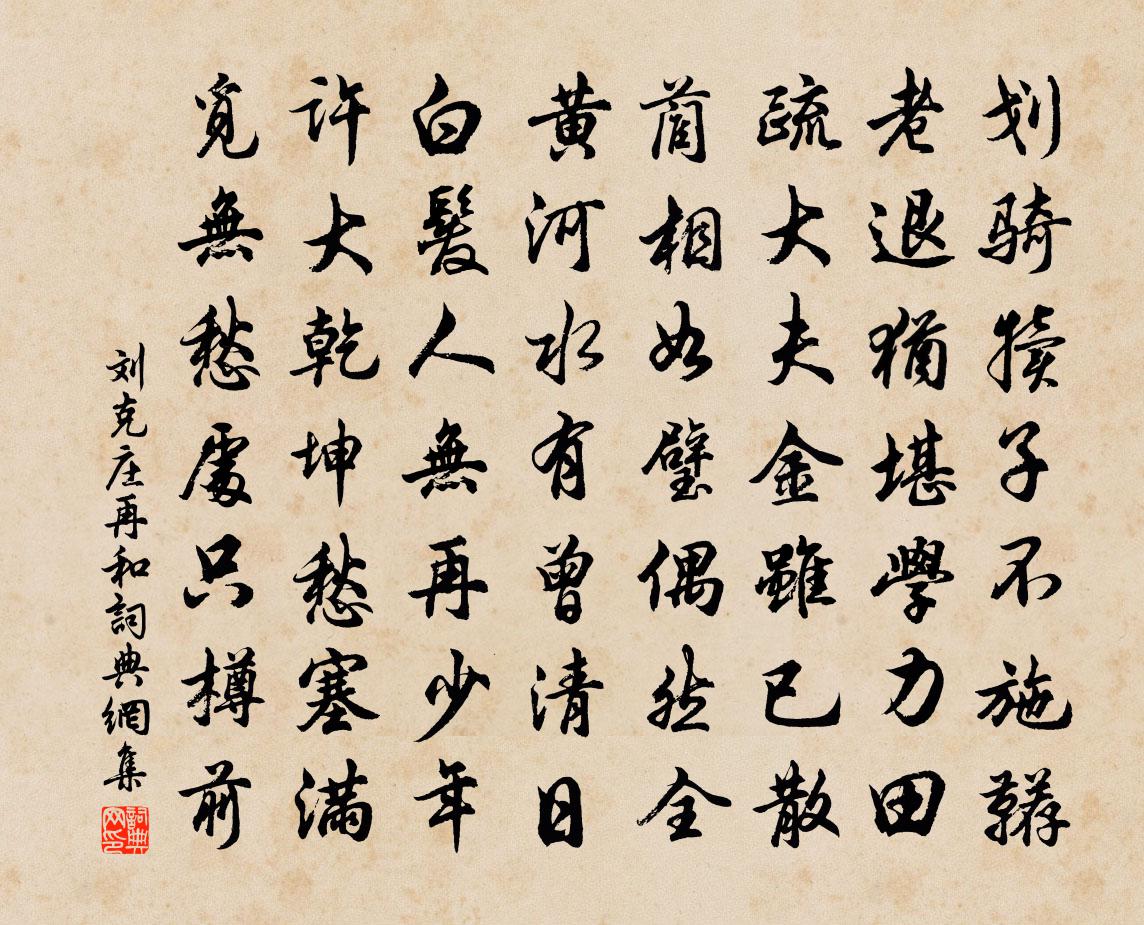 刬骑犊子不施鞯
老退犹堪學力田
疏大夫金雖已散
藺相如璧偶然全
黄河水有曾清日
白髮人無再少年
許大乾坤愁塞滿
覓無愁處只樽前
刘克庄再和詞典網集
詞典網印